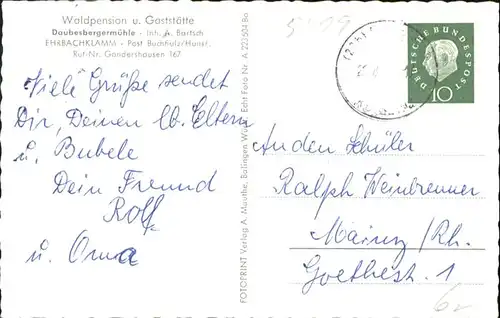 Waldpension u. Gaststätte
Daubesbergermühle - Inh. A. Bartsch
EHRBACHKLAMM - Post Buchholz/Hunsr.
Ruf-Nr. Gondershausen 167
Viele Grüße sendet
Dir, Deinen lb. Eltern
u. Bubele
Dein Freund
Rolf
u. Oma
FOTOPRINT Verlag A. Mauthe, Balingen Württ. Echt Foto Nr. A 223504 Bo
DEUTSCHE BUNDESPOST
10
An den Schüler
Ralph Weinbrenner
Mainz/Rh.
Goethestr. 1